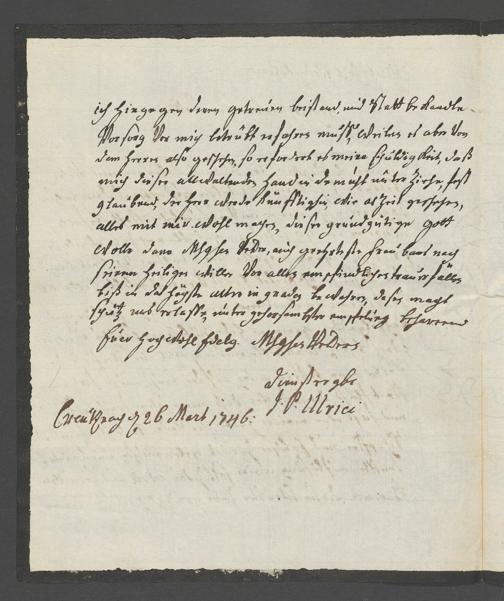 ich hingegen deren getreuen beistand, und Statt bekandte
Vorsorg vor mich betrübt erfahren muß, weilen es aber von
dem Herren also geschehen, so erfordert es meine schuldigkeit, daß
mich dieser allwaltenden hand in demuht unterziehe, fest
glaubend, der Herr werde künfftighin, wie alzeit geschehen,
alles mit mir wohl machen, dieser grundgütige Gott
wolle dann auch geehrteste frau baas nach
seinem heiligen willen vor allen empfindlichen trauerfällen
biß in das höchste alter in gnaden bewahren, deßen macht
schutz uns erlaße, unter gehorsambster empfehlung beharrend
Euer HochEdelg.
dienstergebr
J. P. Ulrici
Creutznach d 26 Mart 1746.